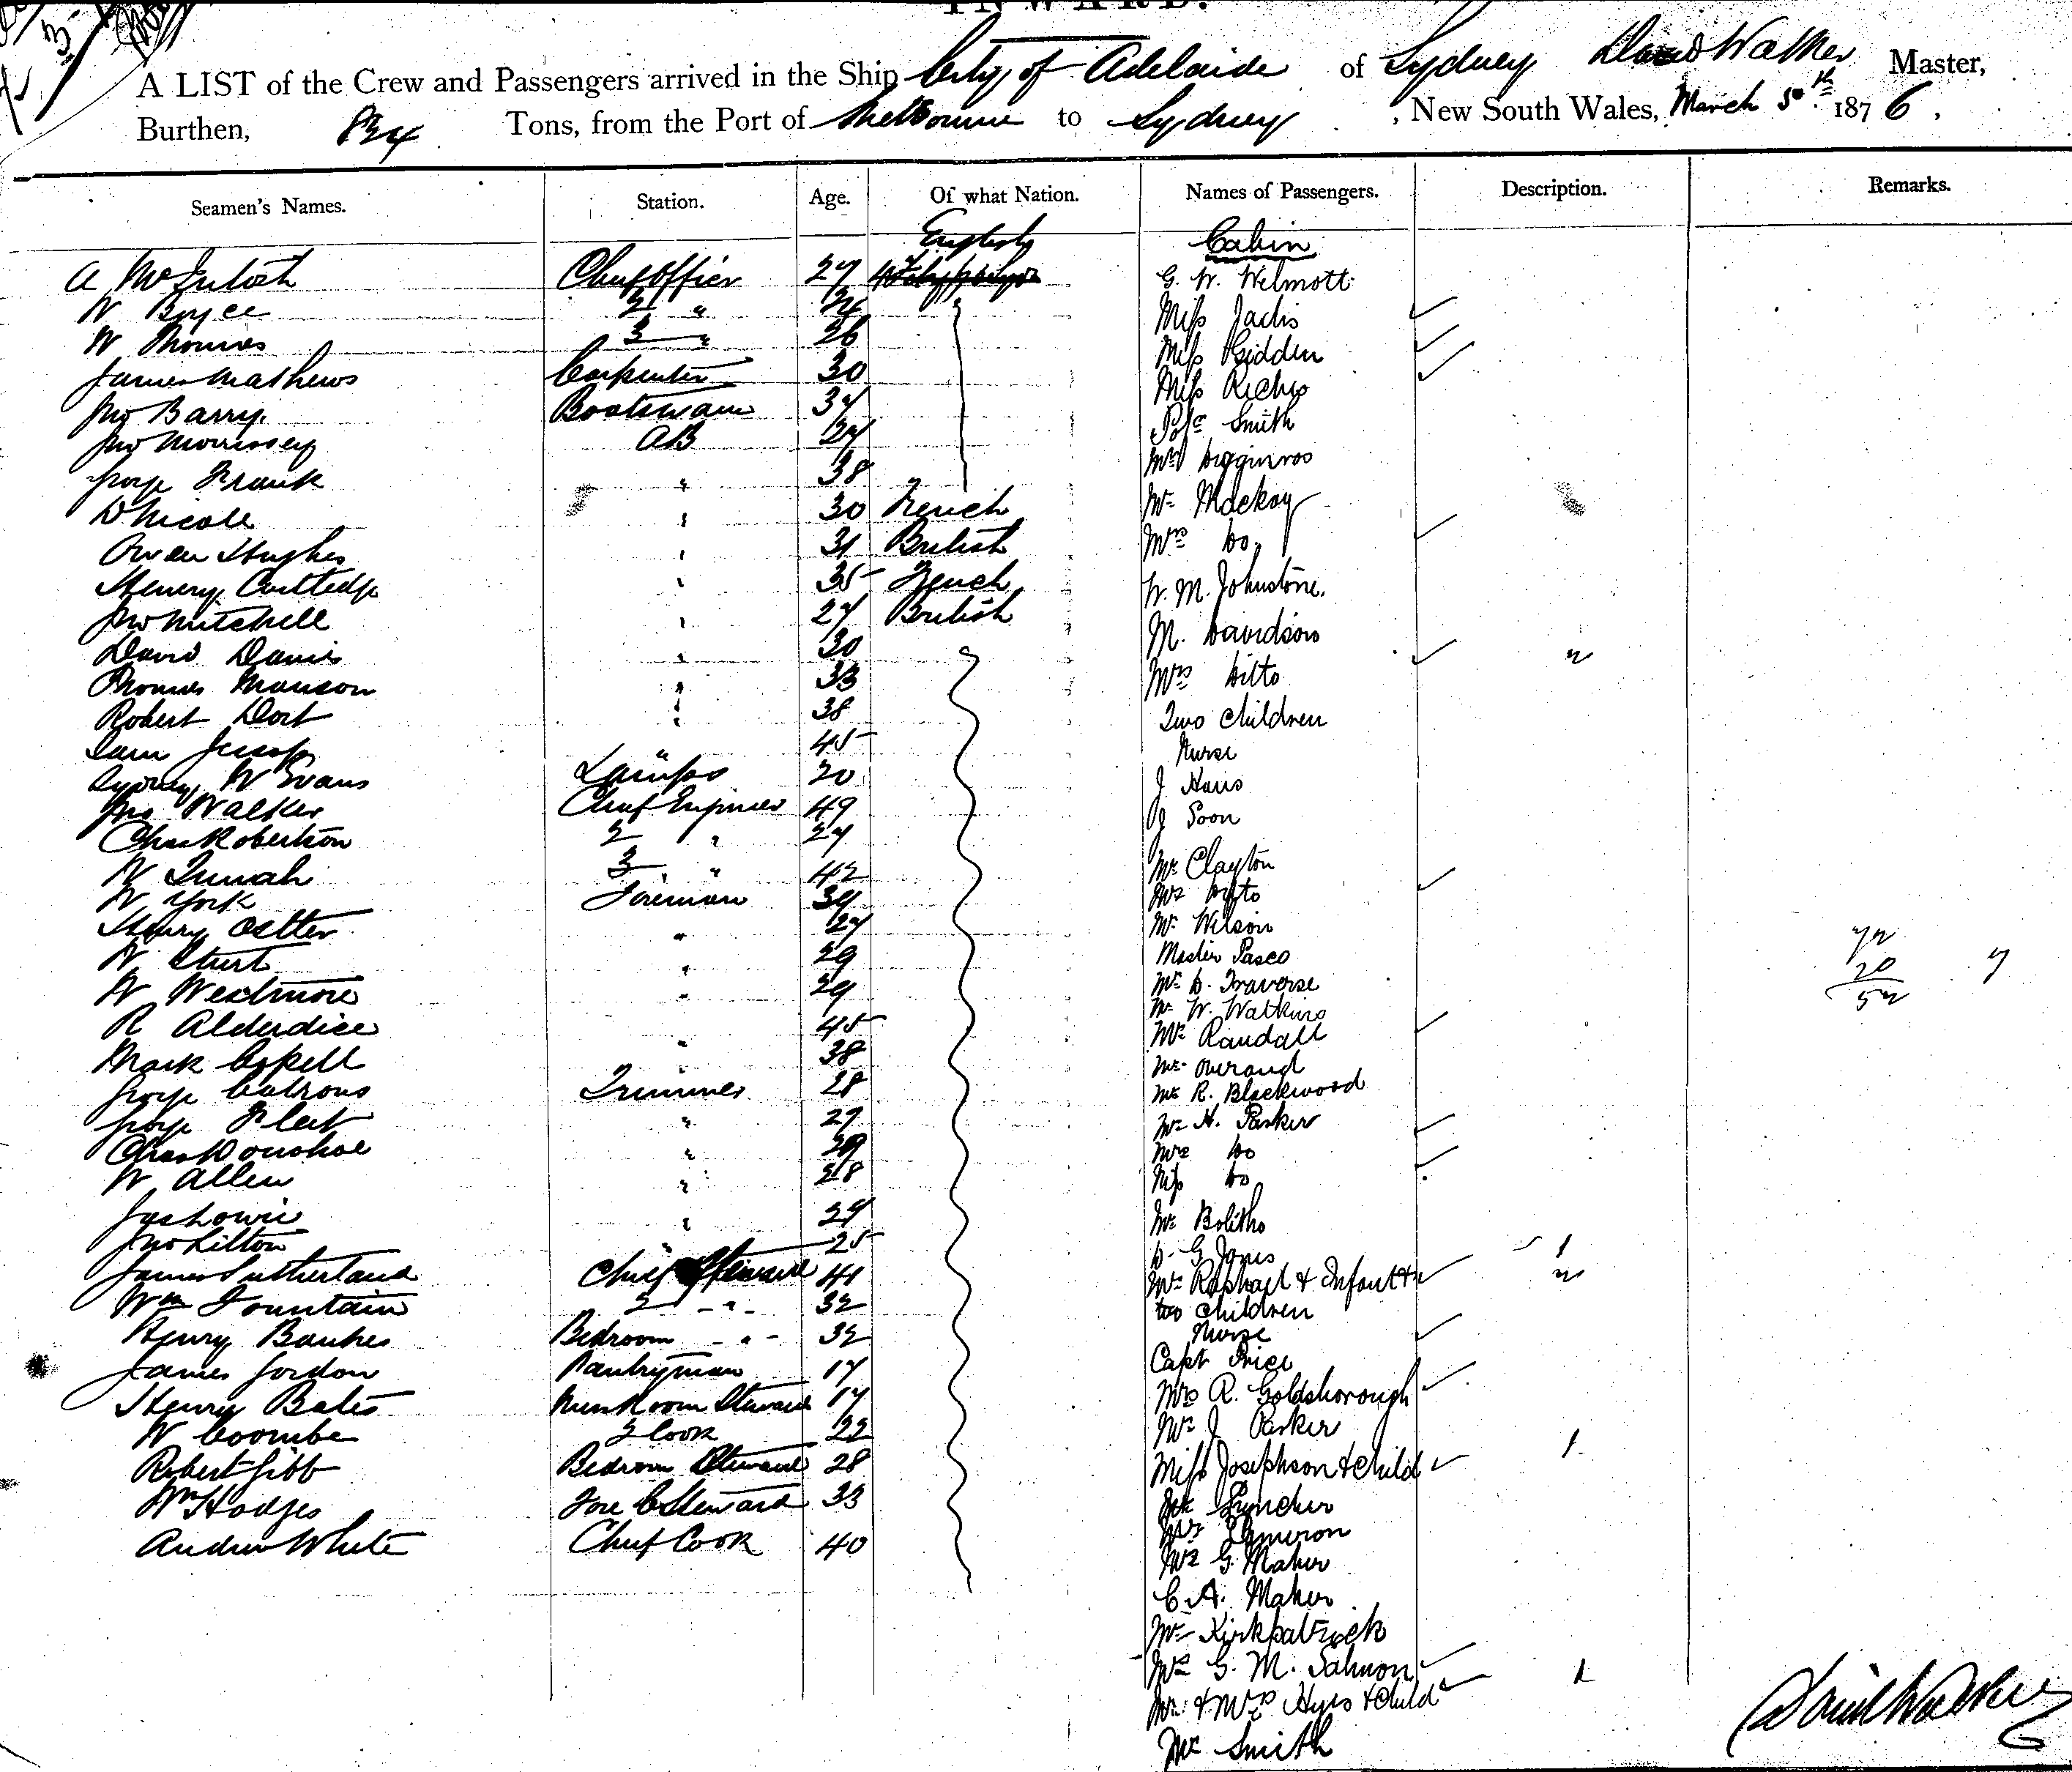 INWARD.
A LIST of the Crew and Passengers arrived in the Ship City of Adelaide of Sydney David Walker Master,
Burthen, 824 Tons, from the Port of Melbourne to Sydney, New South Wales, March 30th 1876,
Seamen's Names. Station. Age. Of what Nation. Names of Passengers. Description. Remarks.
English Cabin
A McIntosh Chief Officer 27 G. W. Welmott
W Boyce 2 " Miss
W Thomas 3 " 26 Miss
James Mathews Carpenter 30 Miss
Jno Barry Boatswain 37 Smith
Jno Morrissey AB 27 Mr Higginson
George Frank " 38 Mr Mackay
D Nicole " 30 French Mrs Do
Owen Hughes " 31 British W. M. Johnstone.
Henry " 35 French M. Davidson
Jno Mitchell " 27 British Mrs Ditto
David Davis " 30 Two Children
Thomas Manson " 33 Nurse
Robert Dort " 38 J
Sam Jessop " 45 J Soon
Sydney W Evans Lamps 20 Mr Clayton
Jno Walker Chief Engineer 49 Mrs Ditto
Chas Robertson 2 " 27 Mr Wilson
W 3 " 42 Master Pasco
W York Fireman 39 Mr D. Traverse
Henry " 27 Mr W. Watkins
W Sturt " 29 Mrs Randall
W Westmore " 29 Mr Overand
R Alderdice 45 Mr R. Blackwood
Mark " 38 Mr H. Parker
George Trimmer 28 Mrs Do
George Fleet " 27 Miss Do
Chas Donohoe " 29 Mr Bolitho
W Allen " 28 D. G. Jones
Jas Lowrie " 29 Mrs Raphael & Infant &
Jno Lilton 25 two Children
James Sutherland Chief Steward 41 Nurse
Wm Fountain 2 - " - 32 Capt Price
Henry Bankes Bedroom - " - 32 Mrs R. Goldsborough
James Gordon Pantryman 17 Mr J Parker
Henry Bates Messroom Steward 17 Miss Josephson & Child
W Coombe 2 Cook 22
Robert Gibb Bedroom Steward 28 Cameron
Wm Hodges Fore C Steward 33 Mr G. Maher
Andrew White Chief Cook 40 C. A. Maher
Mr Kirkpatrick
Mrs G. M. Salmon
Mr & Mrs & Child
Mr Smith
David Walker